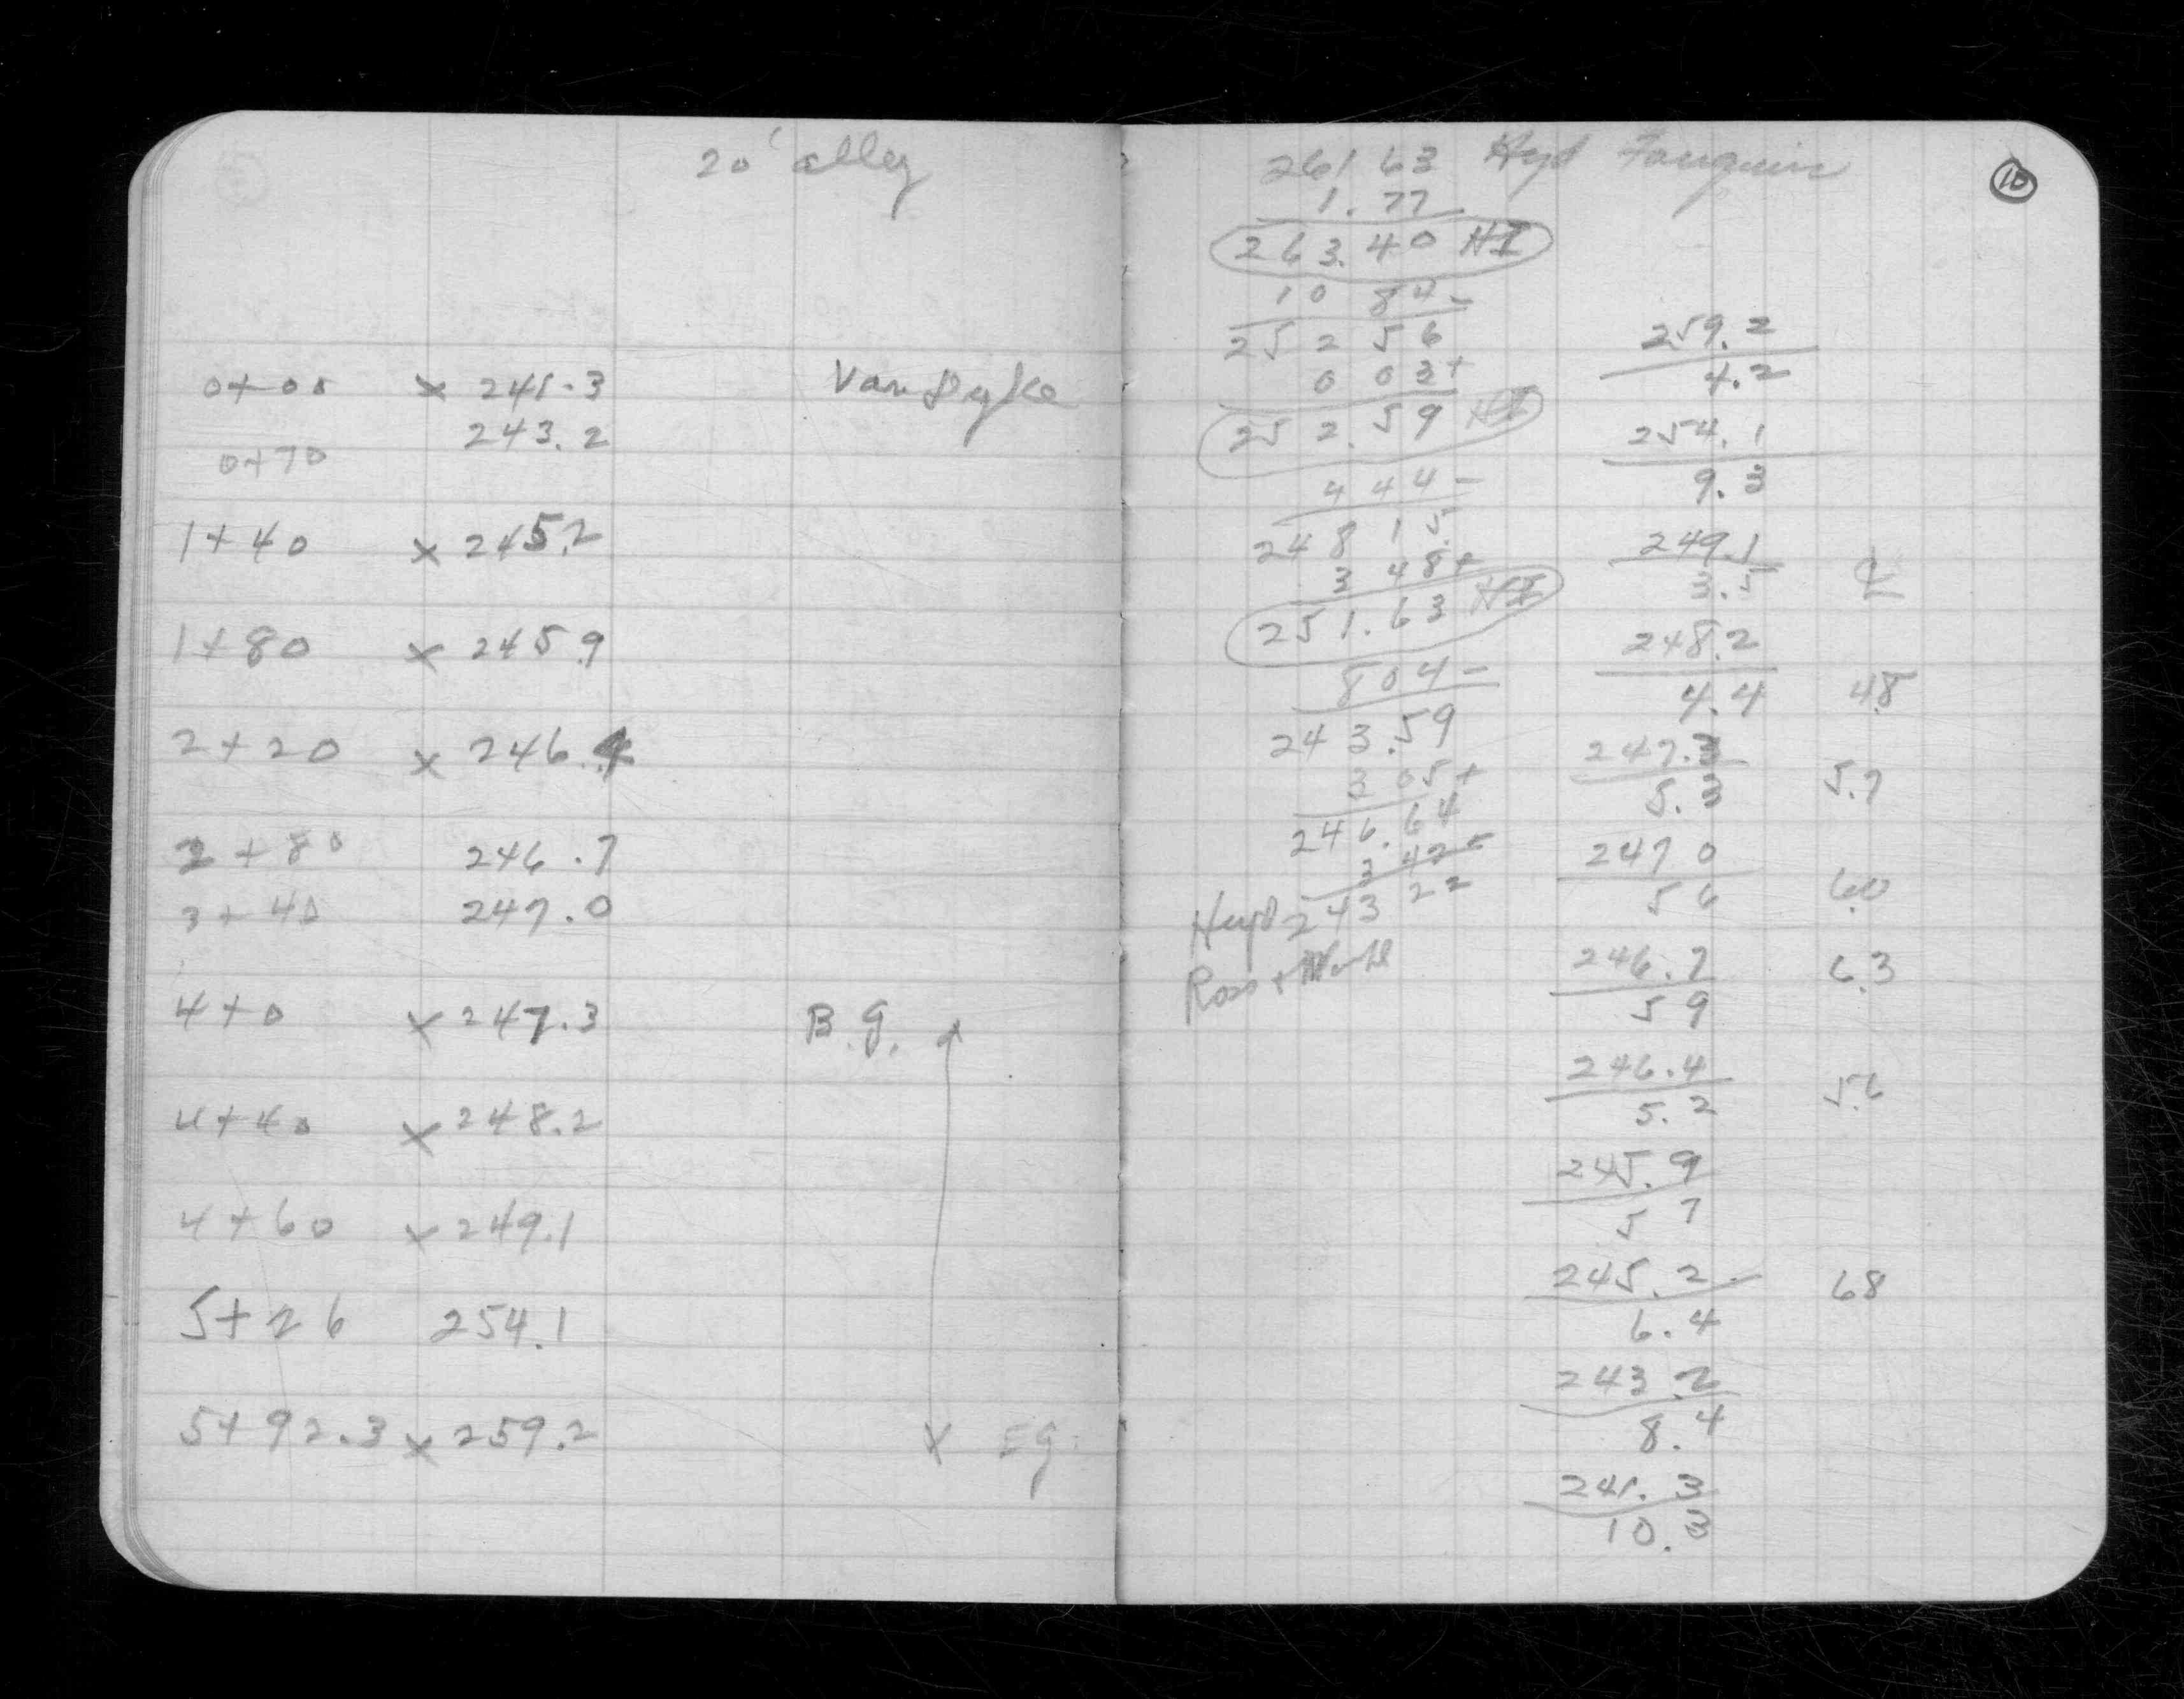 20' alley
0+00 x 241.3 Van Dyke
243.2
0+70
1+40 x 245.2
1+80 x 245.9
2+20 x 246.4
2+80 246.7
3+40 247.0
4+0 x 247.3 B.G.
4+40 x 248.2
4+60 x 249.1
5+26 254.1
5+92.3 x 259.2 x EG.
10
261 63 Hyd Fauquier
1.77
263.40 HI
10 84 -
252 56
0 03+
252.59 HI
4 44 -
248 15
3 48+
251.63 HI
8 04 -
243.59
3 05+
246.64
3 42 -
243 22
Hyd
Ross +
259.2
4.2
254.1
9.3
249.1
3.5 ℄
248.2
4.4 4.8
247.3
5.3 5.7
247 0
5 6 6.0
246.7
5 9 6.3
246.4
5.2 5.6
245.9
5 7
245.2
6.4 68
243.2
8.4
241.3
10.3